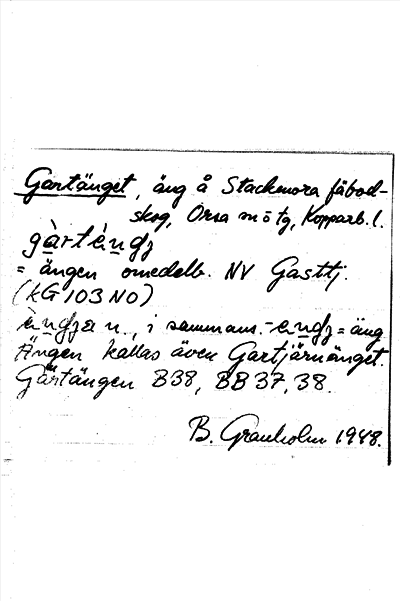 Gartänget, äng å Stackmora fäbod-
skog, Orsa m o tg, Kopparb. l.
gàrtèndʒ
= ängen omedelb. NV Gasttj.
(KG 103 NO)
èndʒan., i sammans. -endʒ = äng
Ängen kallas även Gartjärnänget.
Gårtängen B38, BB 37, 38.
B. Granholm 1948.